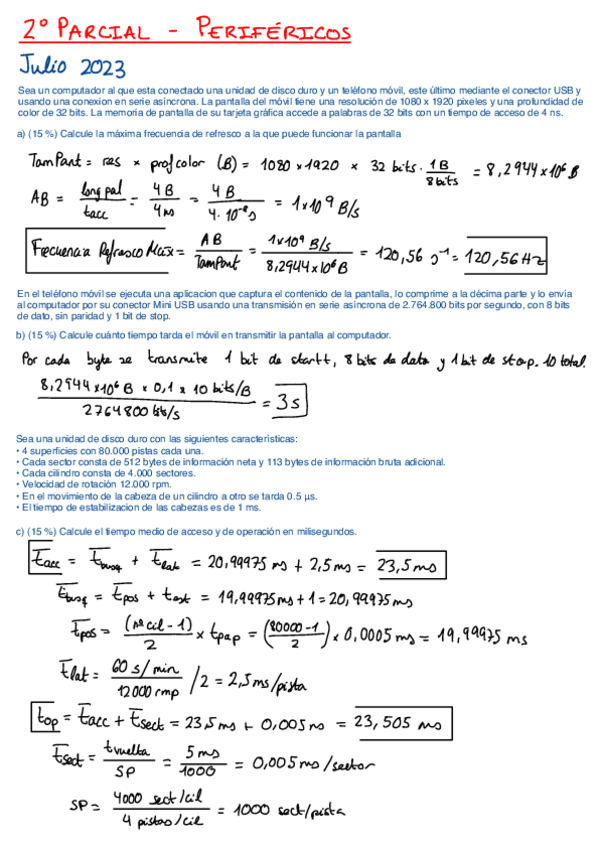 2º PARCIAL - PERIFÉRICOS
Julio 2023
Sea un computador al que esta conectado una unidad de disco duro y un teléfono móvil, este último mediante el conector USB y
usando una conexion en serie asíncrona. La pantalla del móvil tiene una resolución de 1080 x 1920 pixeles y una profundidad de
color de 32 bits. La memoria de pantalla de su tarjeta gráfica accede a palabras de 32 bits con un tiempo de acceso de 4 ns.
a) (15 %) Calcule la máxima frecuencia de refresco a la que puede funcionar la pantalla
TamPant = res × prof color (B) = 1080 × 1920 × 32 bits · 1B / 8 bits = 8,2944 × 10⁶ B
AB = long pal / tacc = 4 B / 4 ns = 4 B / 4·10⁻⁹ s = 1 × 10⁹ B/s
Frecuencia Refresco Max = AB / TamPant = 1×10⁹ B/s / 8,2944×10⁶ B = 120,56 s⁻¹ = 120,56 Hz
En el teléfono móvil se ejecuta una aplicacion que captura el contenido de la pantalla, lo comprime a la décima parte y lo envía
al computador por su conector Mini USB usando una transmisión en serie asíncrona de 2.764.800 bits por segundo, con 8 bits
de dato, sin paridad y 1 bit de stop.
b) (15 %) Calcule cuánto tiempo tarda el móvil en transmitir la pantalla al computador.
Por cada byte se transmite 1 bit de startt, 8 bits de dato y 1 bit de stop. 10 total.
8,2944×10⁶ B × 0,1 × 10 bits/B / 2764800 bit/s = 3 s
Sea una unidad de disco duro con las siguientes características:
• 4 superficies con 80.000 pistas cada una.
• Cada sector consta de 512 bytes de información neta y 113 bytes de información bruta adicional.
• Cada cilindro consta de 4.000 sectores.
• Velocidad de rotación 12.000 rpm.
• En el movimiento de la cabeza de un cilindro a otro se tarda 0.5 µs.
• El tiempo de estabilizacion de las cabezas es de 1 ms.
c) (15 %) Calcule el tiempo medio de acceso y de operación en milisegundos.
tacc = tbusq + tlat = 20,99975 ms + 2,5 ms = 23,5 ms
tbusq = tpos + test = 19,99975 ms + 1 = 20,99975 ms
tpos = (nº cil - 1) / 2 × tpap = (80000 - 1 / 2) × 0,0005 ms = 19,99975 ms
tlat = 60 s/min / 12000 rmp / 2 = 2,5 ms/pista
top = tacc + tsect = 23,5 ms + 0,005 ms = 23,505 ms
tsect = tvuelta / SP = 5 ms / 1000 = 0,005 ms/sector
SP = 4000 sect/cil / 4 pistas/cil = 1000 sect/pista